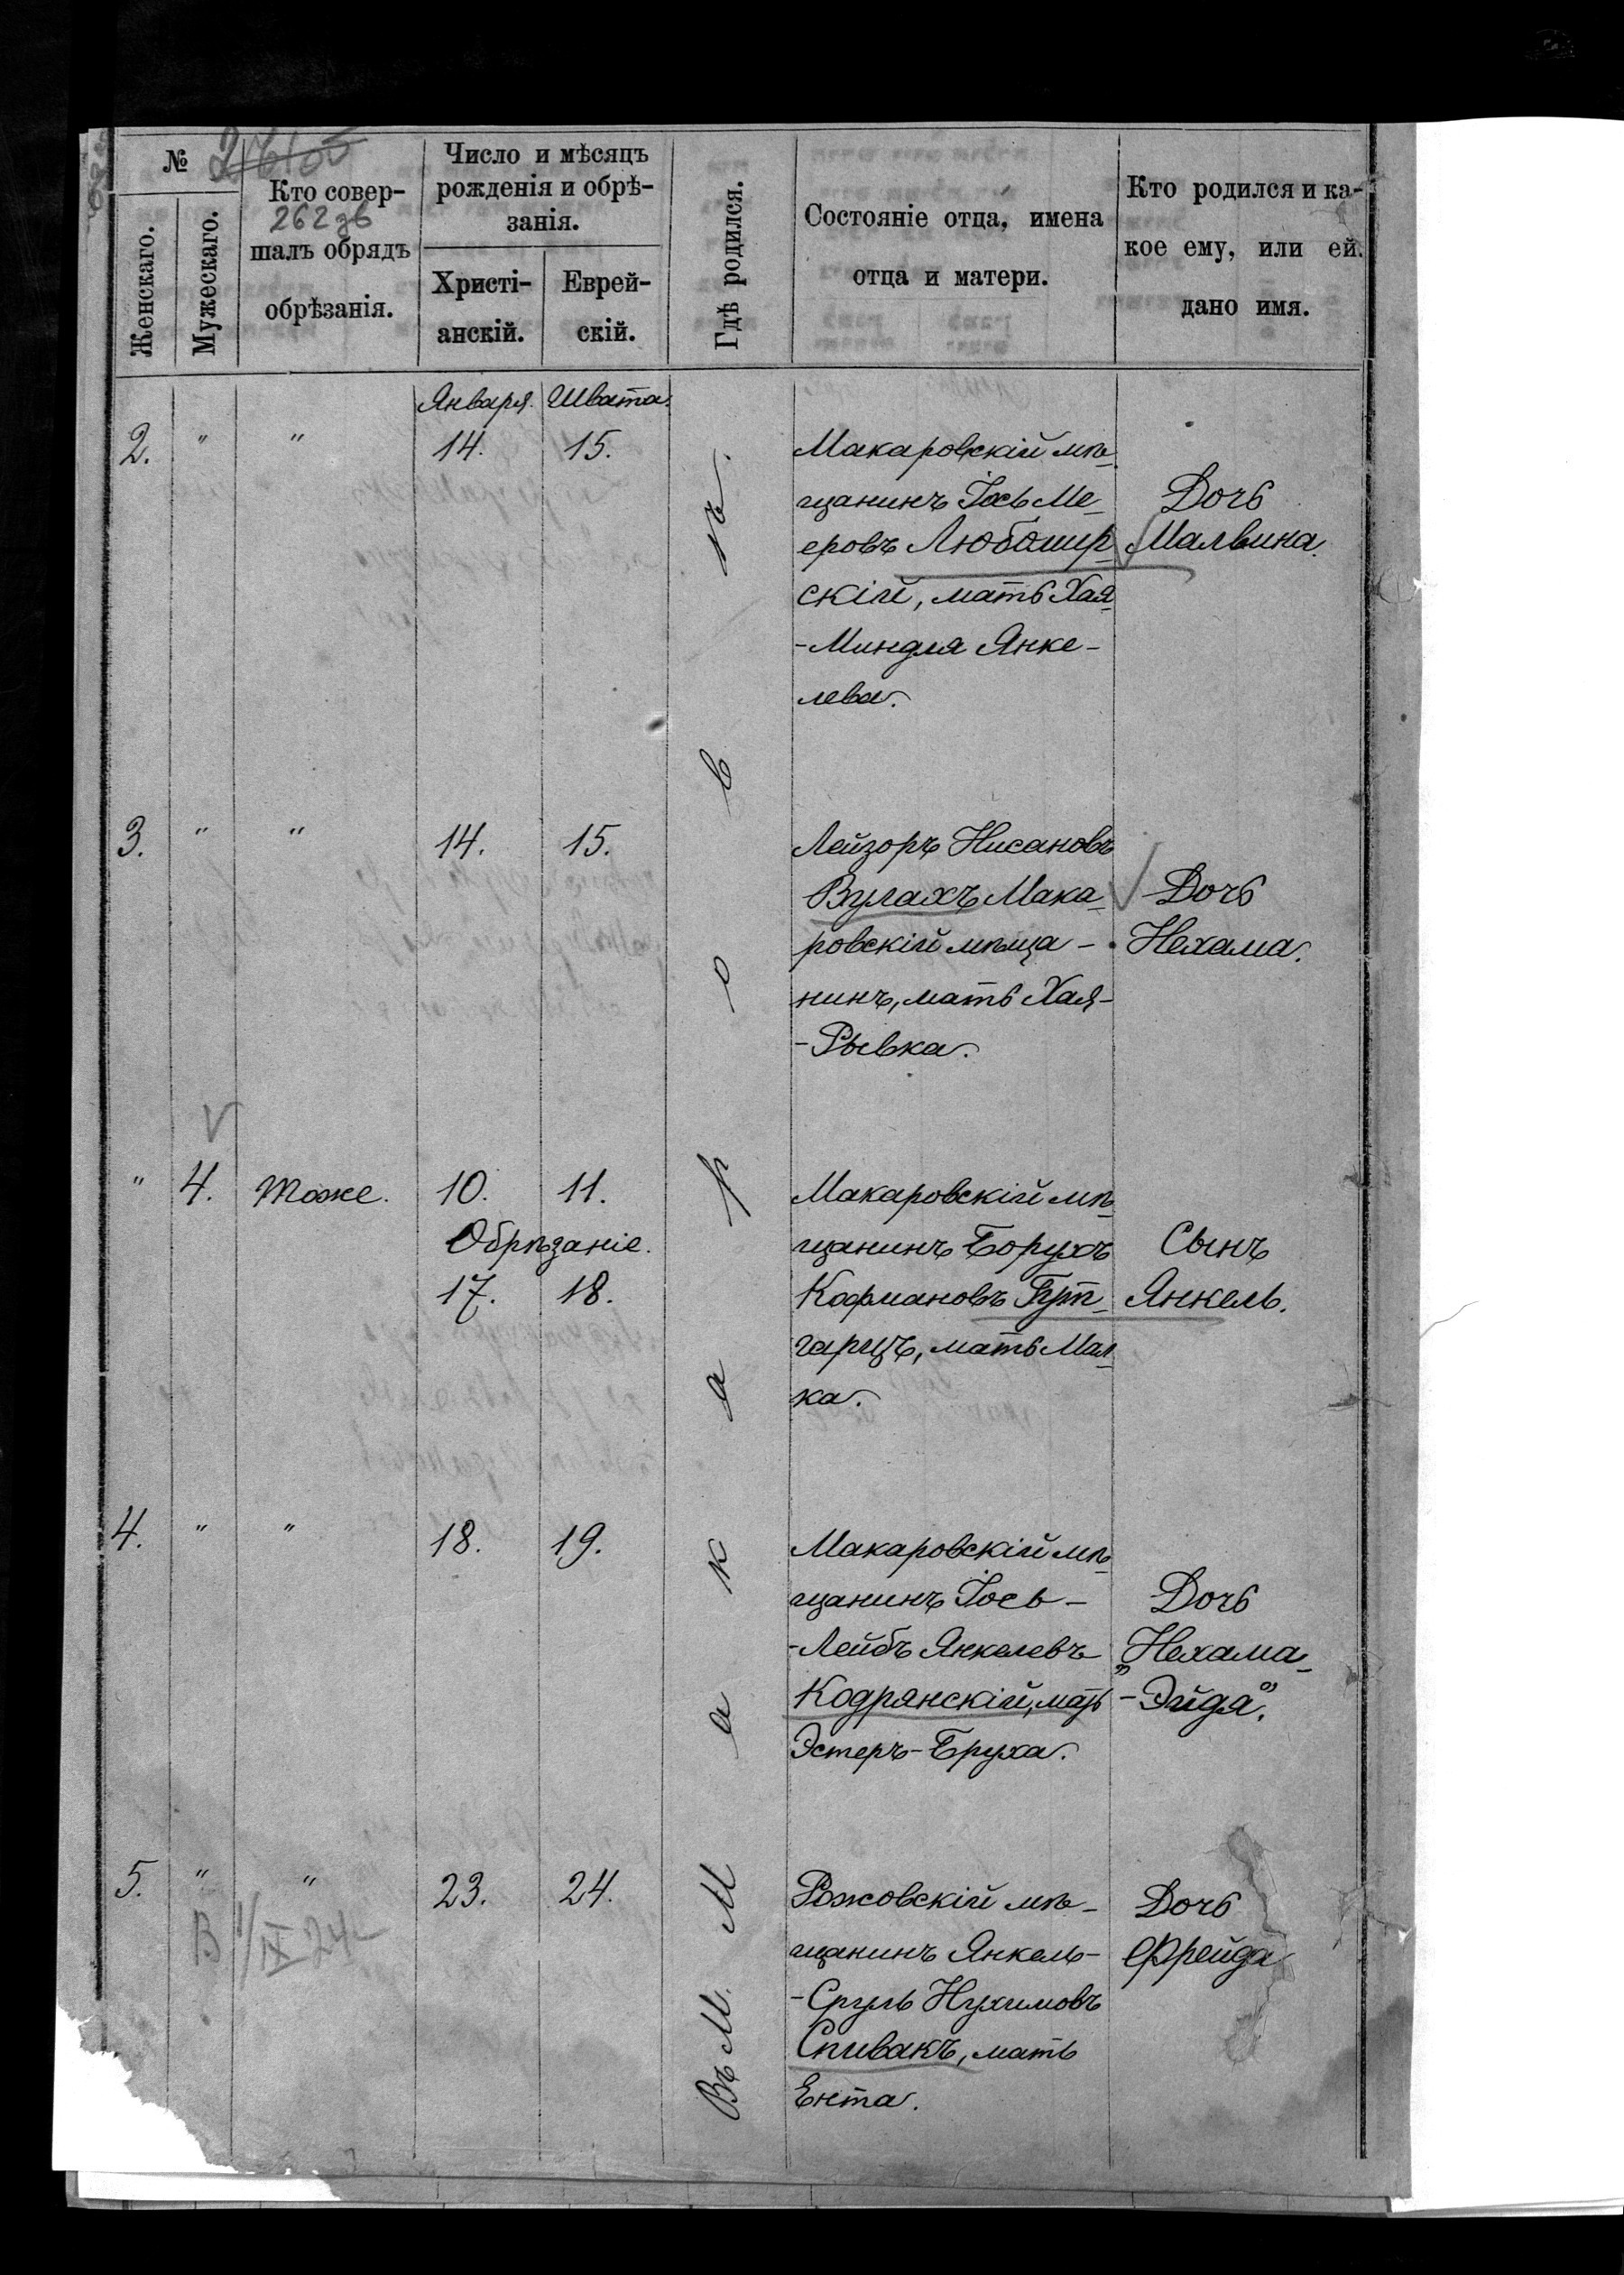 №
Женскаго.
Мужескаго.
Кто совер-
262зв
шалъ обрядъ
обрѣзанія.
Число и мѣсяцъ
рожденія и обрѣ-
занія.
Христі-
анскій.
Еврей-
скій.
Гдѣ родился.
Состояніе отца, имена
отца и матери.
Кто родился и ка-
кое ему, или ей.
дано имя.
Января. Швата.
Въ М. Макаровѣ.
2. " " 14. 15.
Макаровскій мѣ-
щанинъ Іось Ме-
еровъ Любомир-
скій, мать Хая-
-Миндля Янке-
лева.
Дочь
Мальвина.
3. " " 14. 15.
Лейзоръ Нисановъ
Вулахъ Мака-
ровскій мѣща-
нинъ, мать Хая-
-Рывка.
Дочь
Нехама.
" 4. Тоже. 10. 11.
Обрѣзаніе.
17. 18.
Макаровскій мѣ-
щанинъ Борухъ
Кофмановъ Гут-
гарцъ, мать Мал-
ка.
Сынъ
Янкель.
4. " " 18. 19.
Макаровскій мѣ-
щанинъ Іось-
-Лейбъ Янкелевъ
Кодрянскій, мать
Эстеръ-Бруха.
Дочь
„Нехама-
-Эйдя".
5. " " 23. 24.
В 1/IX 24
Рожовскій мѣ-
щанинъ Янкель-
-Сруль Нухимовъ
Спивакъ, мать
Ента.
Дочь
Фрейда